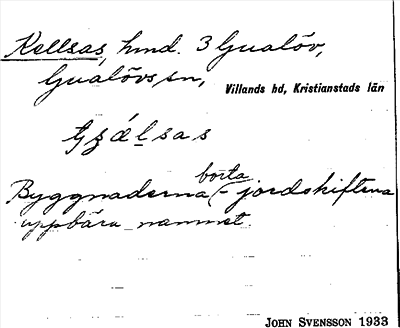 Kellsas, hmd. 3 Gualöv,
Gualövs sn,
Villands hd, Kristianstads län
Byggnaderna borta – jordskiftena
uppbära namnet.
JOHN SVENSSON 1933